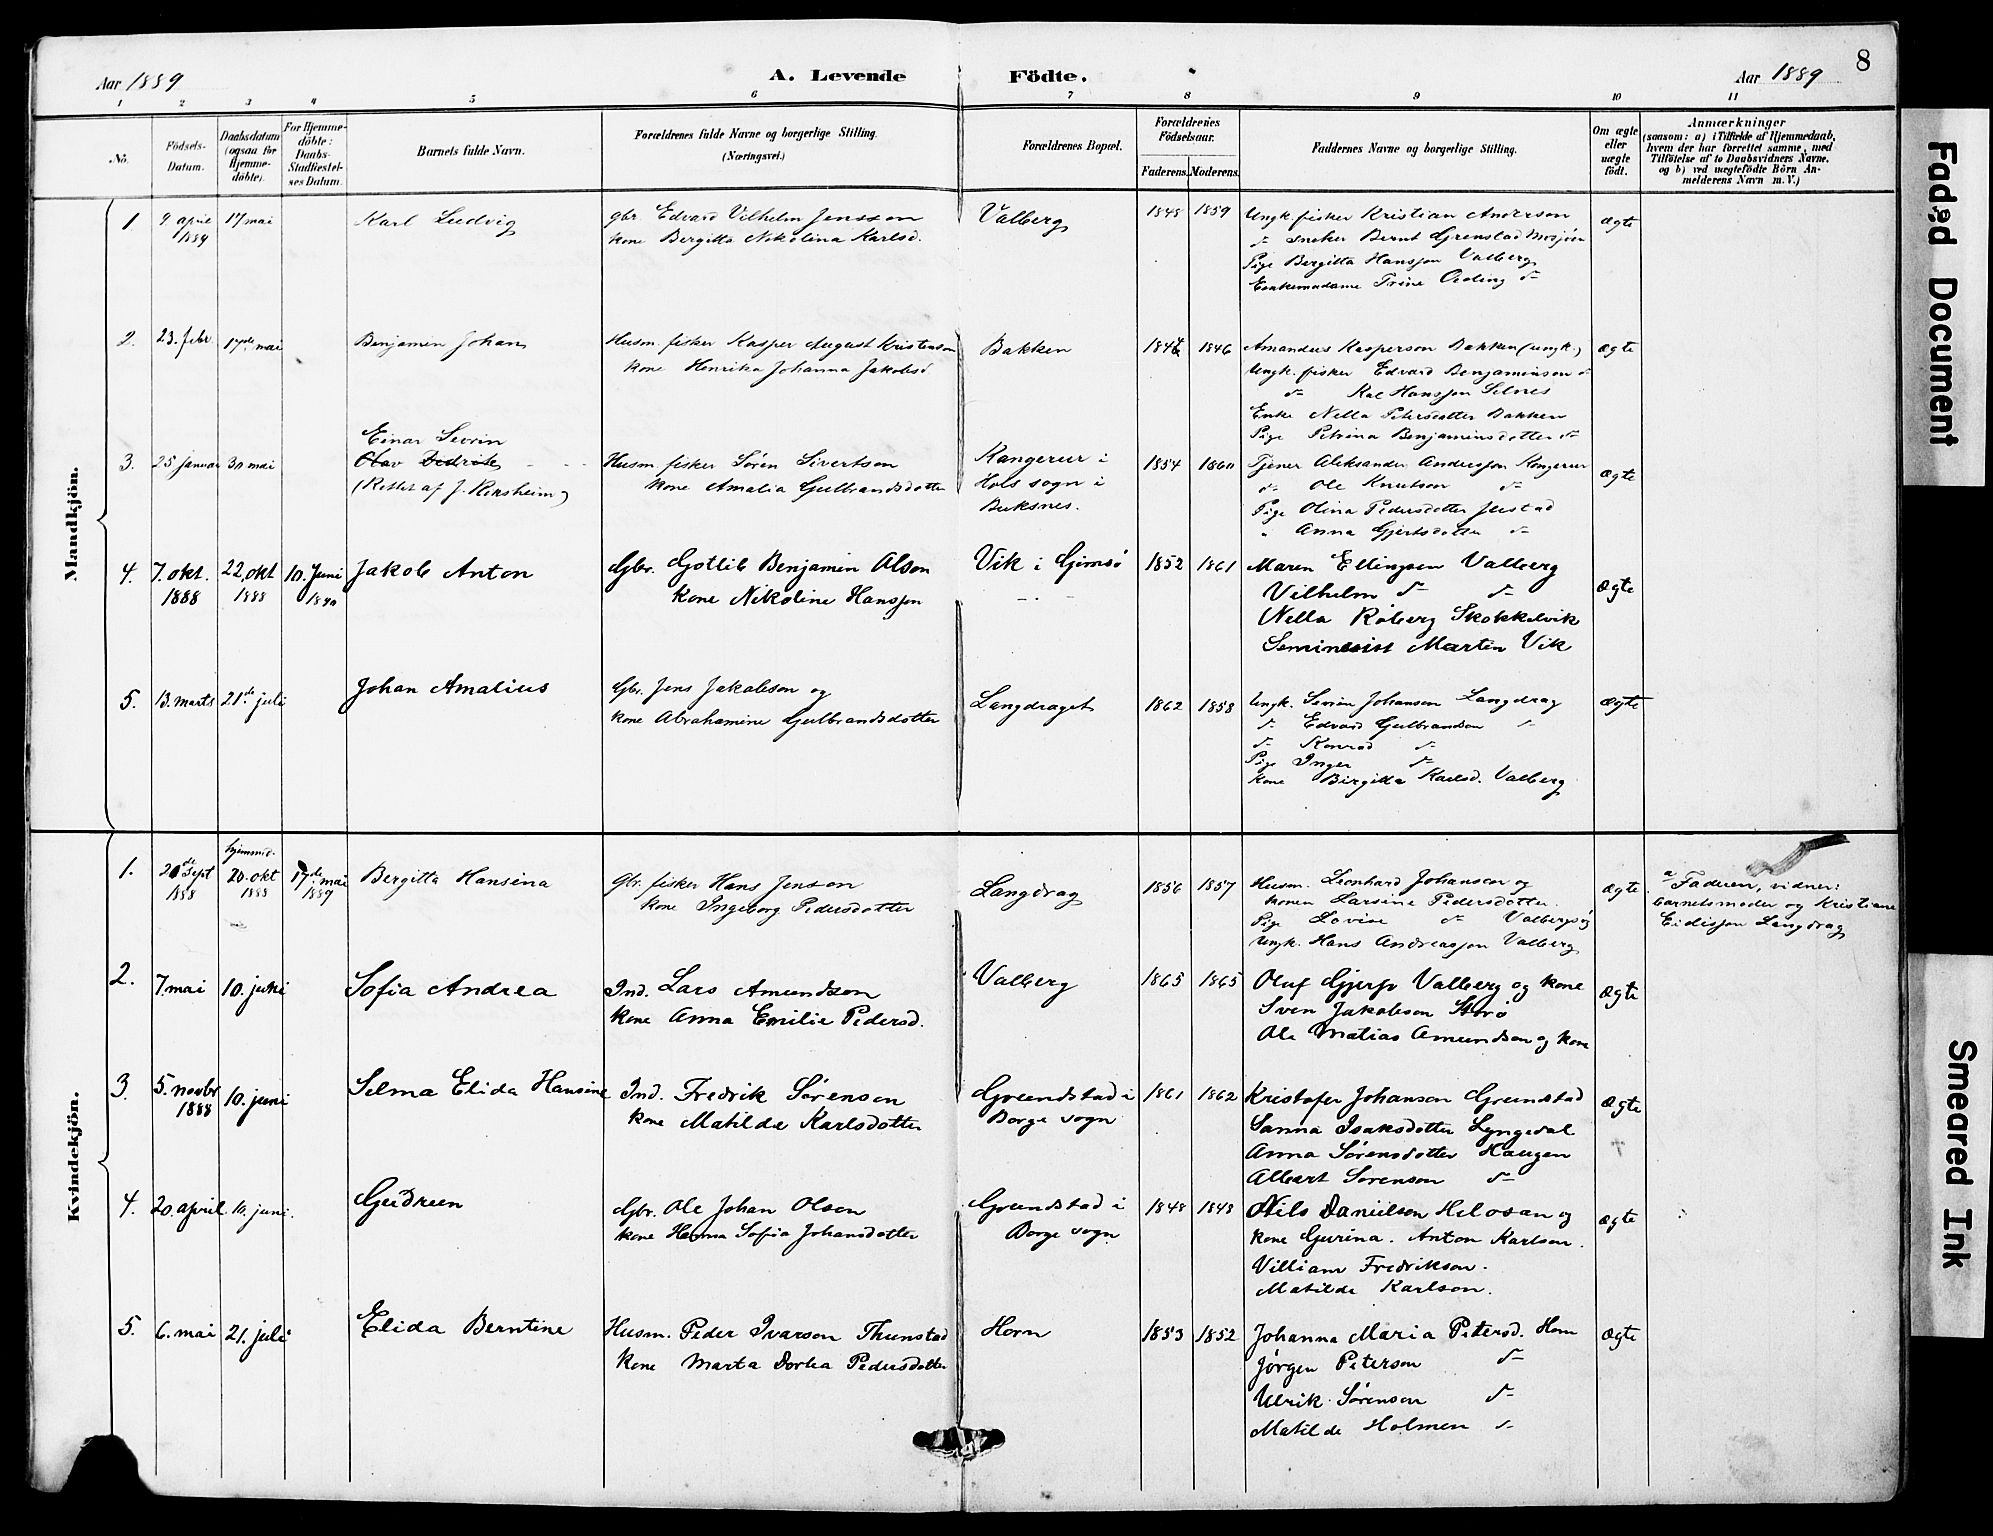 8
Aar 1889
A. Levende Födte.
Aar 1889
1 2 3 4 5 6 7 8 9 10 11
No.
Födsels-Datum.
Daabsdatum (ogsaa for Hjemme-döbte).
For Hjemme-döbte: Daabs-Stadfæstel-ses Datum.
Barnets fulde Navn.
Forældrenes fulde Navne og borgerlige Stilling.
(Næringsvei.)
Forældrenes Bopæl.
Forældrenes Födselsaar.
Faderens. Moderens.
Faddernes Navne og borgerlige Stilling.
Om ægte eller uægte födt.
Anmærkninger
(saasom: a) i Tilfælde af Hjemmedaab, hvem der har forrettet samme, med Tilföielse af to Daabsvidners Navne, og b) ved uægtefödte Börn An-melderens Navn m. V.)
Mandkjön.
1 9 april 1889 17 mai Karl Ludvig
gbr. Edvard Vilhelm Jensson
kone Bergitta Nikolina Karlsd.
Valberg 1848 1859
Ungk. fisker Kristian Anderson
d- Sneker Bernt Grenstad Mosjøen
Pige Bergitta Hansson Valberg
Enkemadame Trine d-
ægte
2. 23. febr. 17de mai Benjamin Johan
Husm. fisker Kasper August Kristenson
kone Henrika Johanna Jakobsd
Bakken 1846
Amandus Kasperson Bakken (ungk.)
Ungk. fisker Edvard Benjaminson d-
d- Kal Hansson Selnes
Enke Nella Petersdatter Bakken
Pige Petrina Benjaminsdotter d-
ægte
3. 25 januar 30 mai Einar Sevrin
Olav Fedrik
(Rettet af J. Reksheim)
Husm. fisker Søren Sivertson
kone Amalia Gulbrandsdotter
Kangerur i
Hols sogn i
Buksnes.
1854 1860
Tjener Aleksander Andersson Kongerur
d- Ole Knutson d-
Pige Olina Pedersdotter Justad
" Anna Gjertsdotter d-
ægte
4. 7. okt. 1888 22. okt 1888 10. Juni 1890 Jakob Anton
Gbr. Gotlib Benjamin Olson
kone Nikoline Hansson
Vik i Gimsø 1852 1861
Maren Ellingsen Valberg
Vilhelm d- d-
Nella Røberg Skokkelvik
Seminarist Martin Vik
ægte
5. 13. marts 21de juli Johan Amalius
Gbr. Jens Jakobson og
kone Abrahamine Gulbrandsdotter
Langdraget 1862 1858
Ungk. Sevrin Johanson Langdrag
d- Edvard Gulbrandson d-
d- Konrad d-
Pige Inger d-
kone Birgitta Karlsd. Valberg
ægte
Kvindekjön.
1. 20de Sept 1888 hjemmed. 20. okt 1888 17de mai 1889 Bergitta Hansina
Gbr. fisker Hans Jenson
kone Ingeborg Pedersdotter
Langdrag 1856 1857
Husm. Leonhard Johanson og
konen Larsine Pedersdotter.
Pige Lovise d- Valbergsøg
Ungk. Hans Andreasson Valberg
ægte
a/ Faderen, vidner:
barnetsmoder og Kristiane
Eidisson Langdrag
2. 7. mai 10. juni Sofia Andrea
Ind. Lars Amundson
kone Anna Emilie Pedersd.
Valberg 1865 1865
Oluf Gjersø Valberg og kone
Sven Jakobson
Ole Matias Amundson og kone
ægte
3. 5. novbr 1888 10. juni Selma Elida Hansine
Ind. Fredrik Sørenson
kone Matilde Karlsdotter
Grundstad i
Borge sogn
1861 1862
Kristofer Johanson Grundstad
Sanna Isaksdotter Lyngedal
Anna Sørensdotter Haugen
Albert Sørenson d-
ægte
4. 20. april 10. juni. Gudrun
Gbr. Ole Johan Olson
kone Hanna Sofia Johansdotter
Grundstad i
Borge sogn
1848 1848
Nils Danielson Helosan og
kone Gurina. Anton Karlson.
Villiam Fredrikson.
Matilde Karlson.
ægte
5. 6. mai 21. juli Elida Berntine
Husm. Peder Ivarson Thunstad
kone Marta Dorka Pedersdotter
Horn 1853 1852
Johanna Maria Petersd. Horn
Jørgen Peterson d-
Ulrik Sørenson d-
Matilde Holmen d-
ægte
Faded Document
Smeared Ink